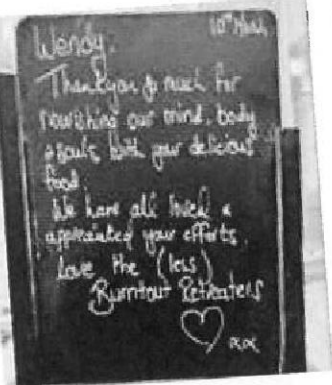 Wendy. 10th March
Thankyou so much for
nourishing our mind, body
& souls with your delicious
food
We have all loved &
appreciated your efforts.
Love the (less)
Burntout Retreaters
xx